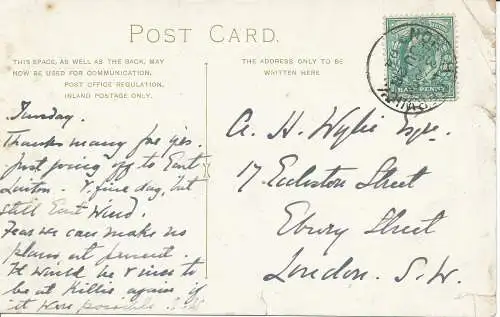 POST CARD.
THIS SPACE, AS WELL AS THE BACK, MAY
NOW BE USED FOR COMMUNICATION.
POST OFFICE REGULATION,
INLAND POSTAGE ONLY.
THE ADDRESS ONLY TO BE
WRITTEN HERE
HALF PENNY
Tuesday.
Thanks many for yrs.
Just going off to East
V. fine day, but
still East Wind.
Fear we can make no
plans at present.
It would be v. nice to
be at Killis again if
it were possible.
A. H. Wylie Esq.
17 Eccleston Street
Ebury Street
London. S.W.